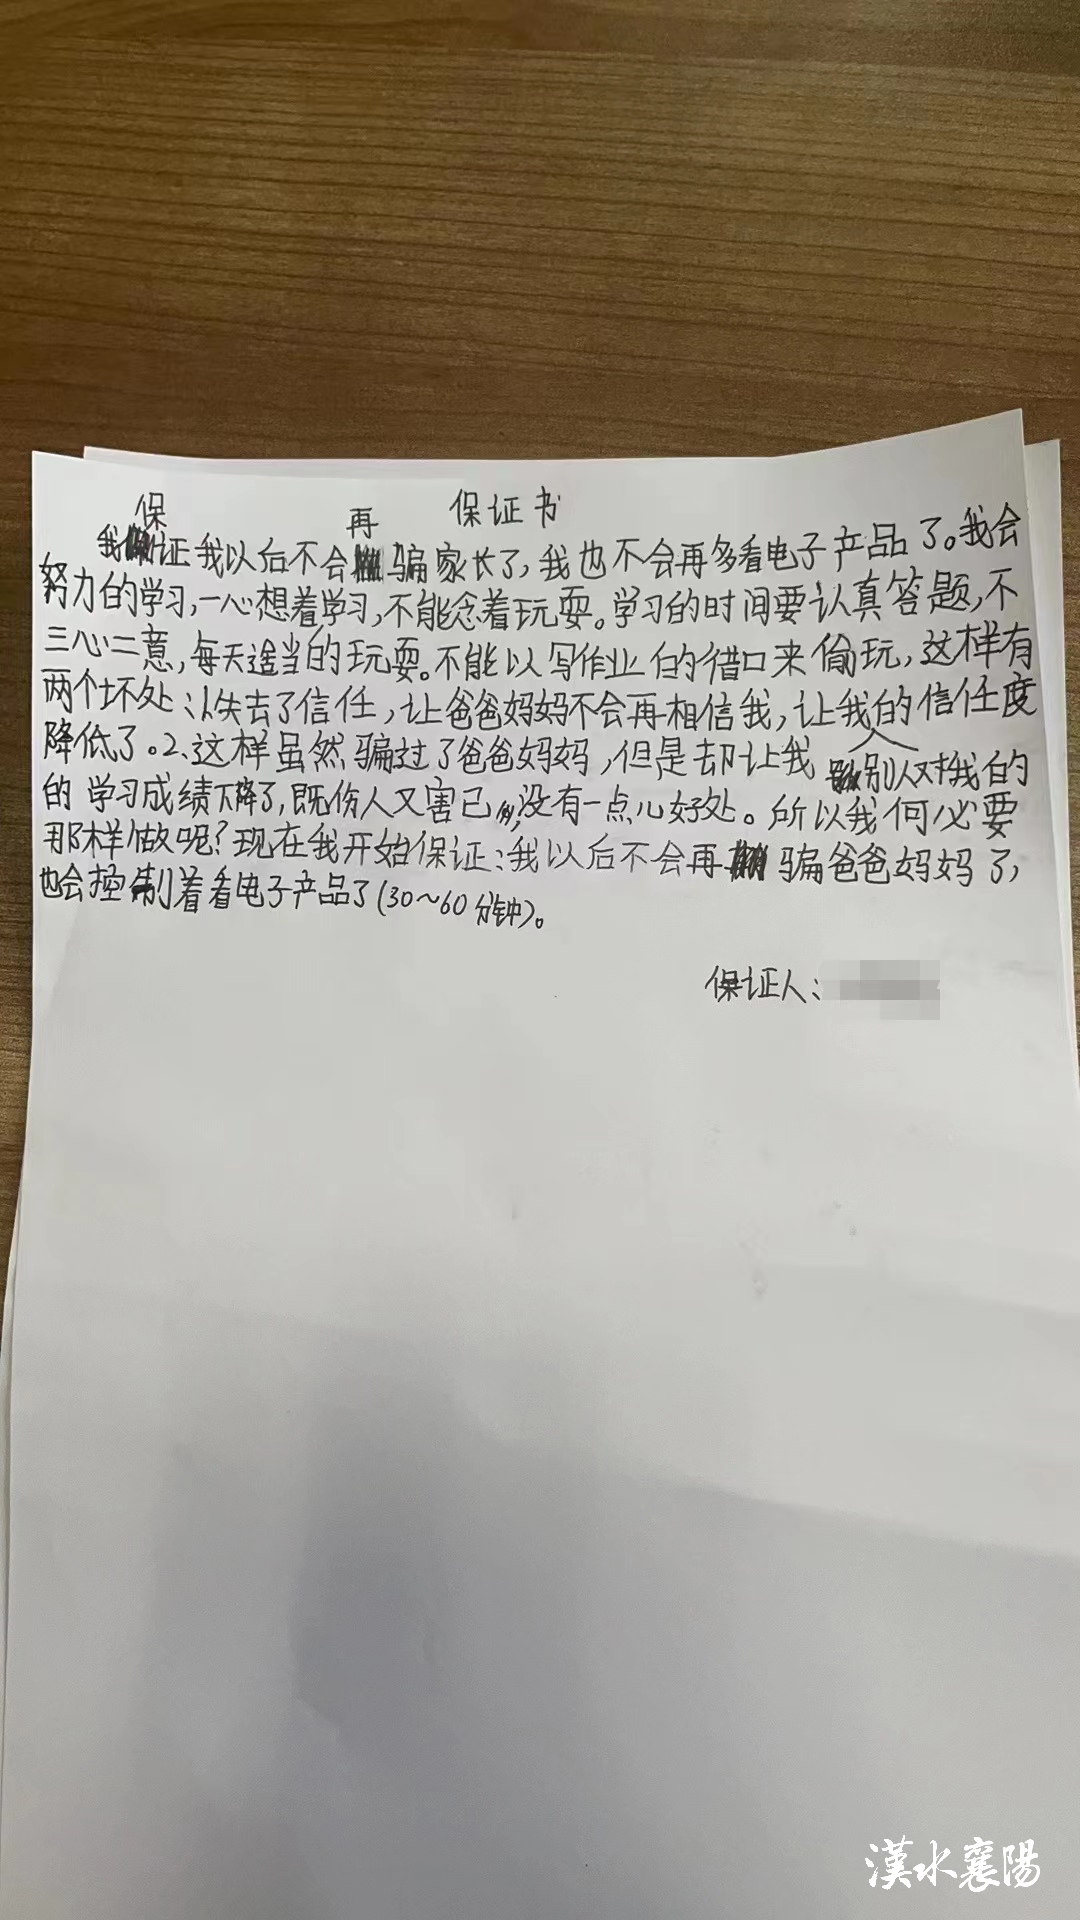 保证书
我保证我以后不会再骗家长了，我也不会再多看电子产品了。我会
努力的学习，一心想着学习，不能念着玩耍。学习的时间要认真答题，不
三心二意，每天适当的玩耍。不能以写作业的借口来偷玩，这样有
两个坏处：1.失去了信任，让爸爸妈妈不会再相信我，让我的信任度
降低了。2、这样虽然骗过了爸爸妈妈，但是却让我 别人对我的
的学习成绩下降了，既伤人又害己，没有一点儿好处。所以我何必要
那样做呢？现在我开始保证：我以后不会再骗爸爸妈妈了，
也会控制着看电子产品了(30～60分钟)。
保证人：
漢水襄陽